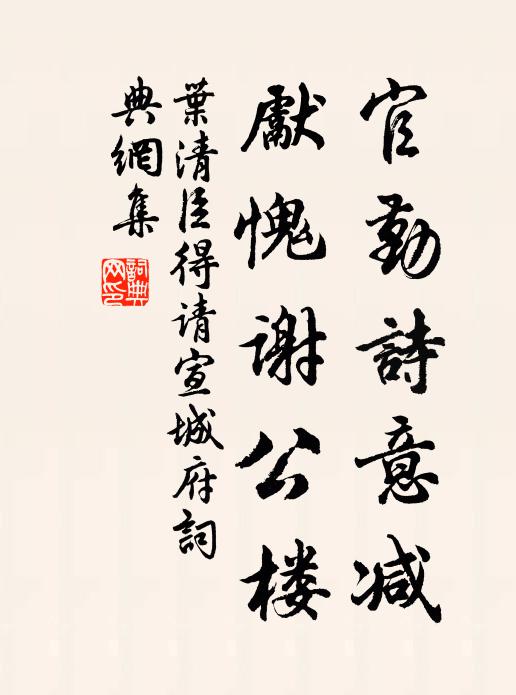 官勤詩意减
獻愧謝公楼
葉清臣得请宣城府詞
典網集
詞典
网印